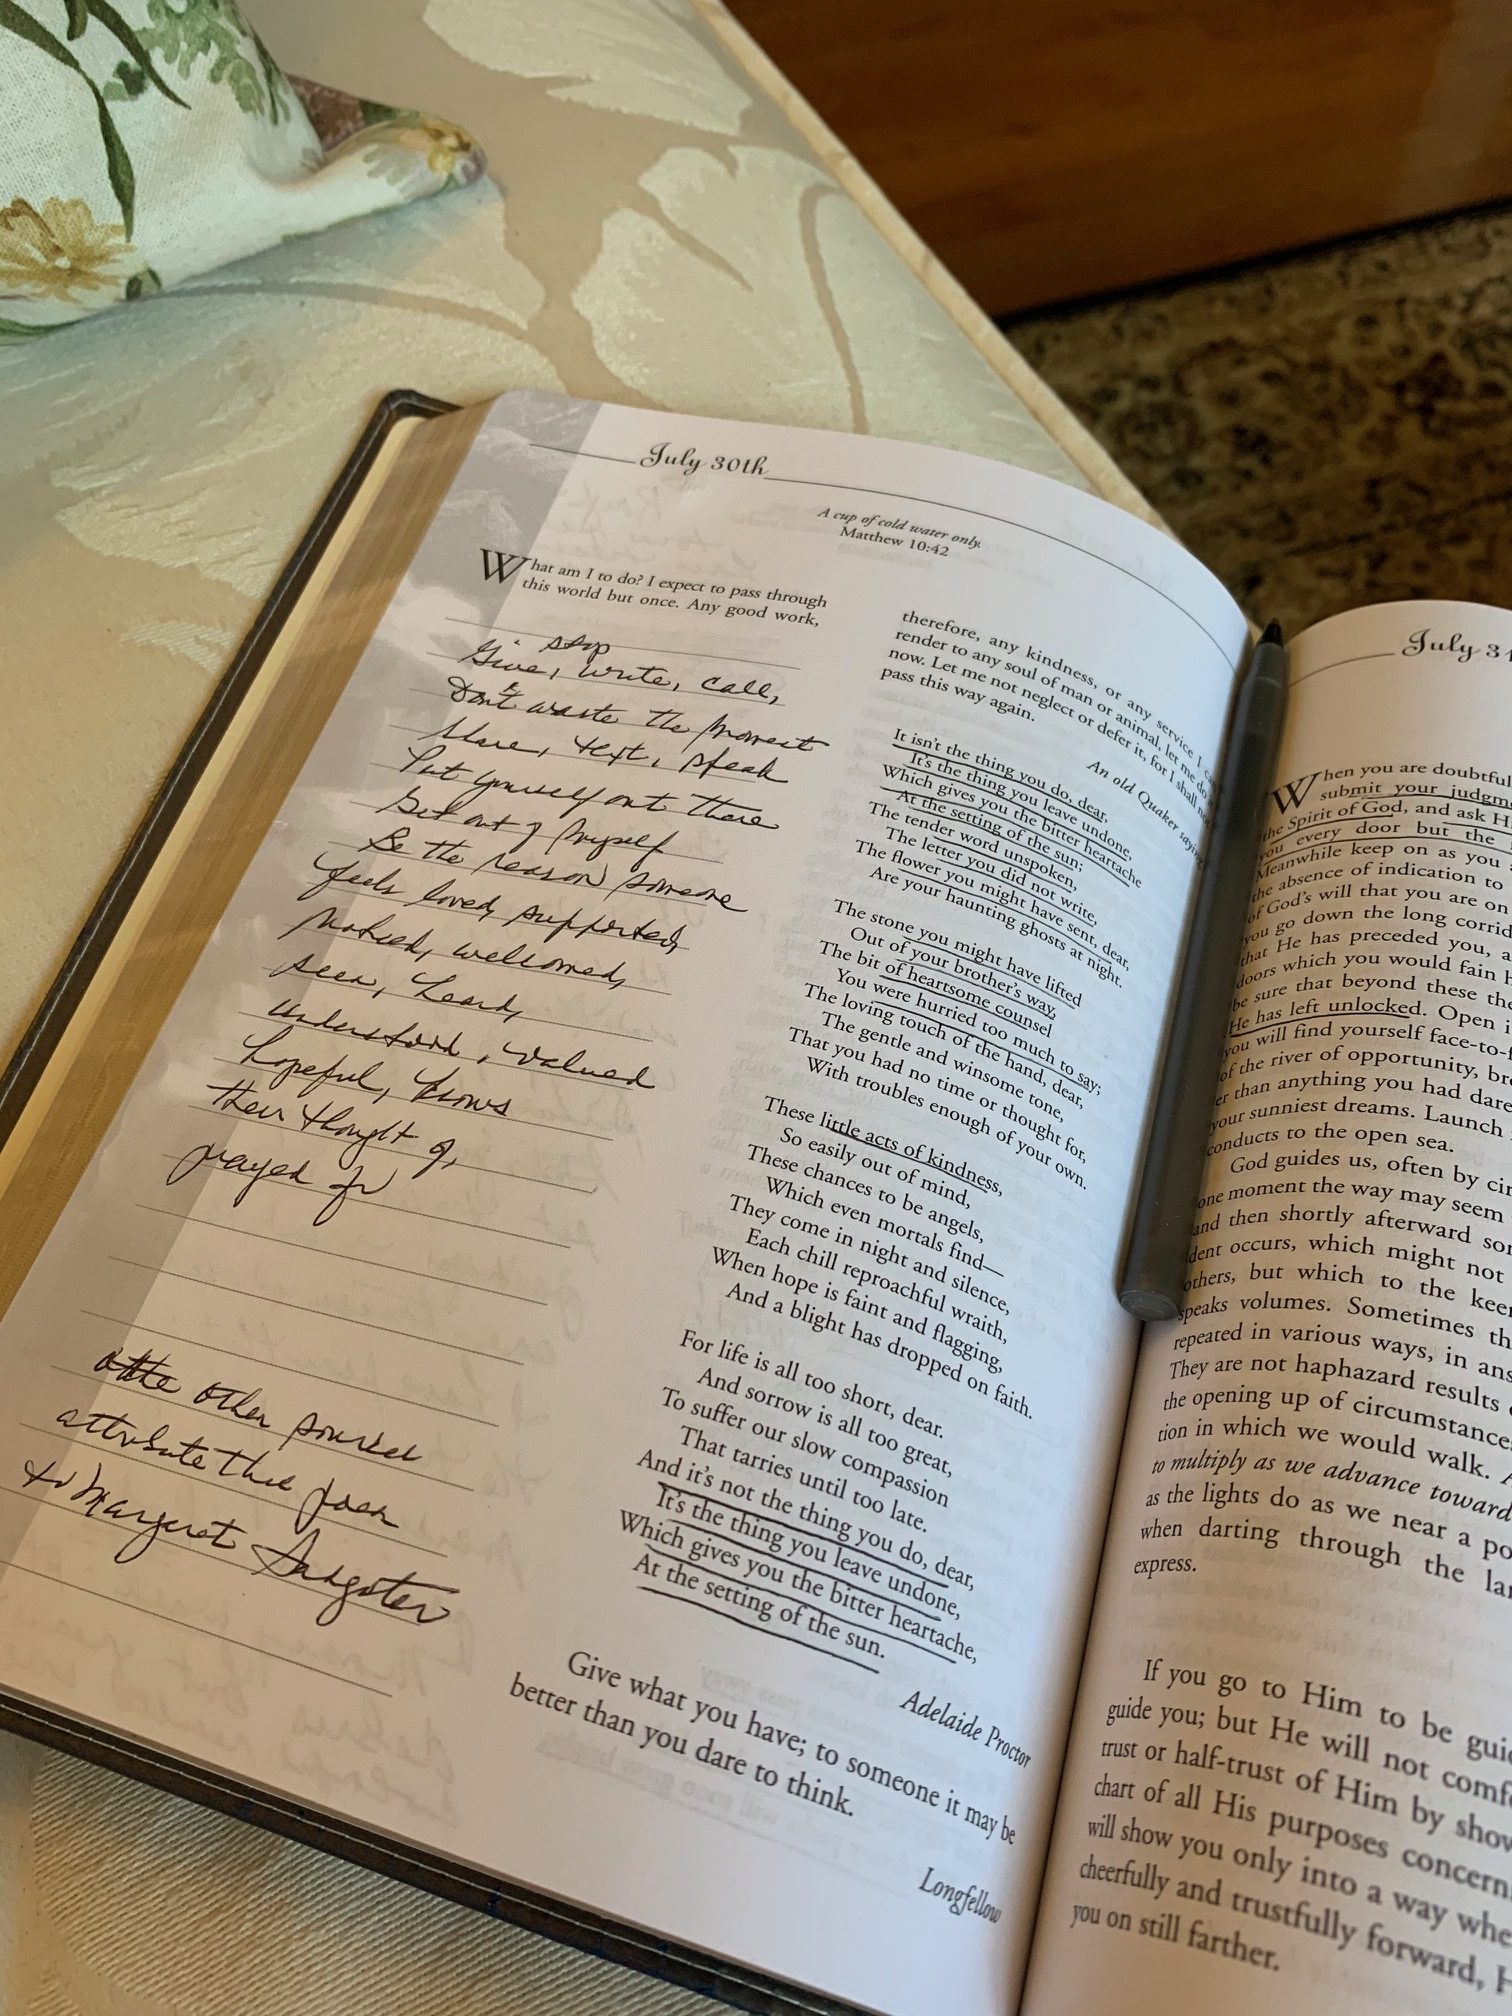 July 30th
A cup of cold water only.
Matthew 10:42
What am I to do? I expect to pass through
this world but once. Any good work,
stop
Give, write, call,
Don't waste the moment
share, text, speak
Put yourself out there
Get out of myself
Be the reason someone
feels loved, supported,
noticed, welcomed,
seen, heard,
understood, valued
hopeful, knows
their thought of,
prayed for
other sources
attribute this poem
to Margaret Sangster
therefore, any kindness, or any service I can
render to any soul of man or animal, let me do it
now. Let me not neglect or defer it, for I shall not
pass this way again.
An old Quaker saying
It isn't the thing you do, dear,
It's the thing you leave undone,
Which gives you the bitter heartache
At the setting of the sun;
The tender word unspoken,
The letter you did not write,
The flower you might have sent, dear,
Are your haunting ghosts at night.
The stone you might have lifted
Out of your brother's way,
The bit of heartsome counsel
You were hurried too much to say;
The loving touch of the hand, dear,
The gentle and winsome tone,
That you had no time or thought for,
With troubles enough of your own.
These little acts of kindness,
So easily out of mind,
These chances to be angels,
Which even mortals find—
They come in night and silence,
Each chill reproachful wraith,
When hope is faint and flagging,
And a blight has dropped on faith.
For life is all too short, dear.
And sorrow is all too great,
To suffer our slow compassion
That tarries until too late.
And it's not the thing you do, dear,
It's the thing you leave undone,
Which gives you the bitter heartache,
At the setting of the sun.
Adelaide Proctor
Give what you have; to someone it may be
better than you dare to think.
Longfellow
July 31
When you are doubtful
submit your judgm
the Spirit of God, and ask H
you every door but the
Meanwhile keep on as you
the absence of indication to
of God's will that you are on
you go down the long corrid
that He has preceded you, a
doors which you would fain
be sure that beyond these the
He has left unlocked. Open i
you will find yourself face-to-f
of the river of opportunity, bro
er than anything you had dare
your sunniest dreams. Launch
conducts to the open sea.
God guides us, often by cir
one moment the way may seem
and then shortly afterward som
dent occurs, which might not
others, but which to the keen
speaks volumes. Sometimes th
repeated in various ways, in ans
They are not haphazard results
the opening up of circumstance
tion in which we would walk.
to multiply as we advance toward
as the lights do as we near a po
when darting through the la
express.
If you go to Him to be gui
guide you; but He will not comf
trust or half-trust of Him by show
chart of all His purposes concern
will show you only into a way whe
cheerfully and trustfully forward, H
you on still farther.